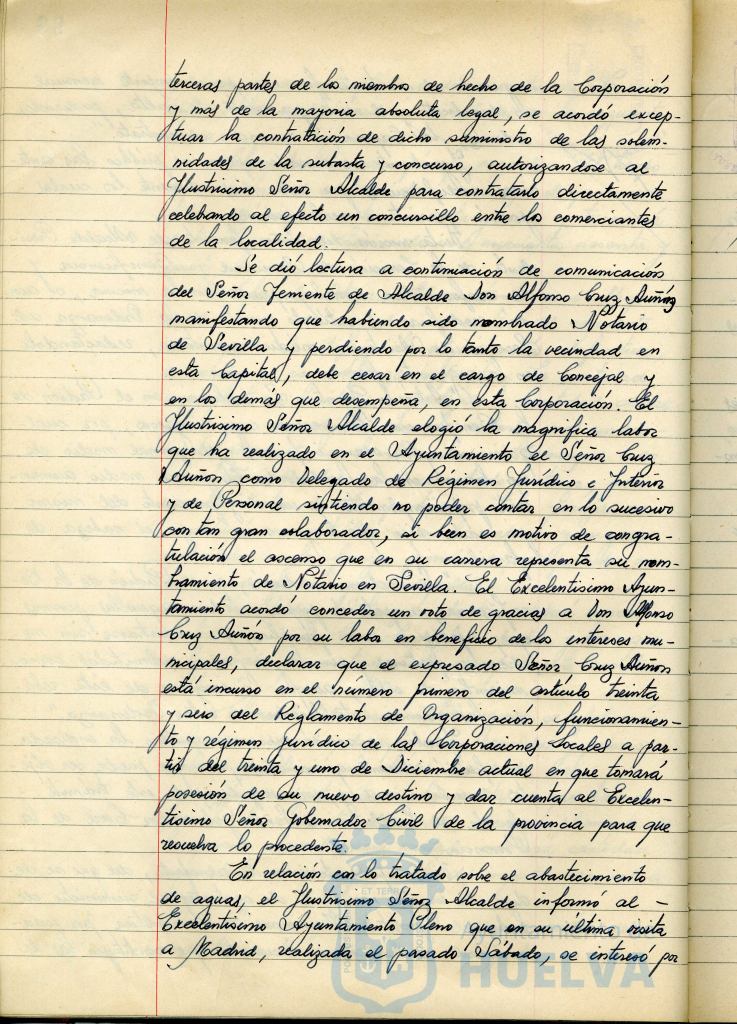 terceras partes de los miembros de hecho de la Corporación
y más de la mayoria absoluta legal, se acordó excep-
tuar la contratación de dicho suministro de las solem-
nidades de la subasta y concurso, autorizandose al
Ilustrisimo Señor Alcalde para contratarlo directamente
celebrando al efecto un concursillo entre los comerciantes
de la localidad.
Se dió lectura a continuación de comunicación
del Señor Teniente de Alcalde Don Alfonso Cruz Auñón
manifestando que habiendo sido nombrado Notario
de Sevilla y perdiendo por lo tanto la vecindad en
esta Capital, debe cesar en el cargo de Concejal y
en los demás que desempeña, en esta Corporación. El
Ilustrisimo Señor Alcalde elogió la magnifica labor
que ha realizado en el Ayuntamiento el Señor Cruz
Auñón como Delegado de Régimen Jurídico e Interior
y de Personal sintiendo no poder contar en lo sucesivo
con tan gran colaborador, si bien es motivo de congra-
tulación el ascenso que en su carrera representa su nom-
bramiento de Notario en Sevilla. El Excelentisimo Ayun-
tamiento acordó conceder un voto de gracias a Don Alfonso
Cruz Auñón por su labor en beneficio de los intereses mu-
nicipales, declarar que el expresado Señor Cruz Auñon
está incurso en el número primero del artículo treinta
y seis del Reglamento de Organización, funcionamien-
to y régimen jurídico de las Corporaciones Locales a par-
tir del treinta y uno de Diciembre actual en que tomará
posesión de su nuevo destino y dar cuenta al Excelen-
tisimo Señor Gobernador Civil de la provincia para que
resuelva lo procedente.
En relación con lo tratado sobre el abastecimiento
de aguas, el Ilustrisimo Señor Alcalde informó al -
Excelentisimo Ayuntamiento Pleno que en su última visita
a Madrid, realizada el pasado Sábado, se interesó por
HUELVA